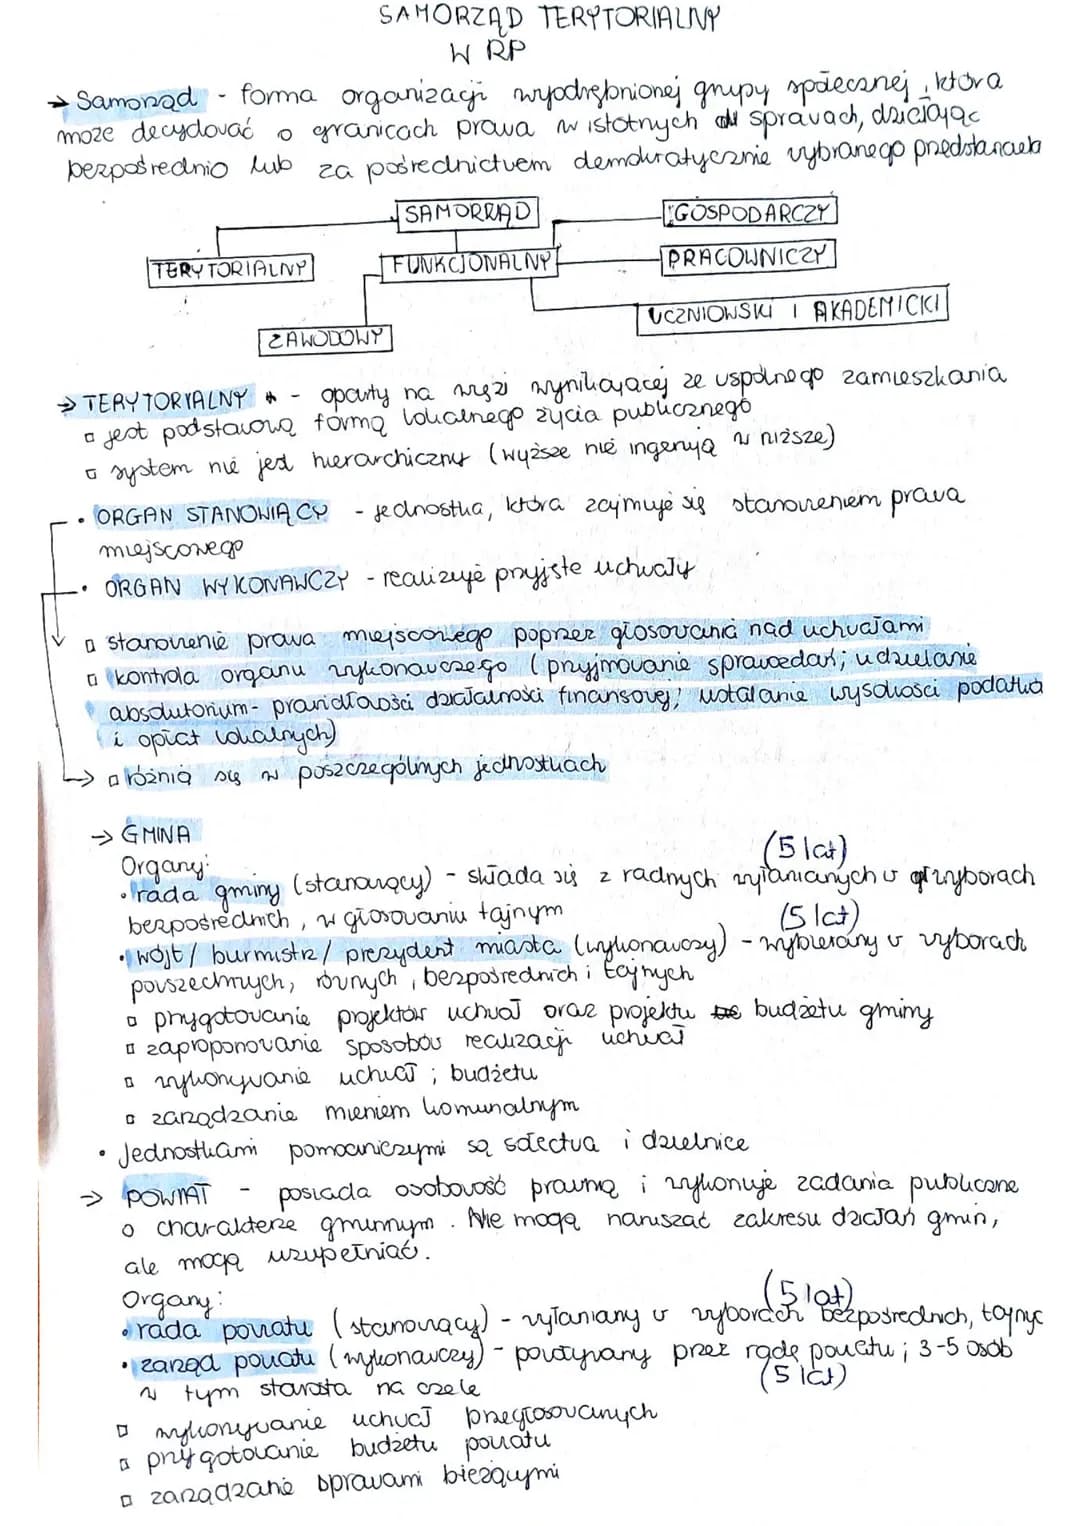 SAMORZĄD TERYTORIALNY
W RP
→ Samorząd - forma organizacji wyodrębnionej grupy społecznej, która
może decydować o granicach prawa w istotnych sprawach, działając
bezpośrednio lub za pośrednictwem demokratycznie wybranego przedstawiciela
SAMORZĄD
GOSPODARCZY
TERYTORIALNY
FUNKCJONALNY
PRACOWNICZY
UCZNIOWSKI I AKADEMICKI
ZAWODOWY
→ TERYTORYALNY - oparty na więzi wynikającej ze wspólnego zamieszkania
▫ jest podstawową formą lokalnego życia publicznego
▫ system nie jest hierarchiczny (wyższe nie ingerują w niższe)
• ORGAN STANOWIĄCY - jednostka, która zajmuje się stanowieniem prawa
miejscowego
• ORGAN WYKONAWCZY - realizuje przyjęte uchwały
▫ stanowienie prawa miejscowego poprzez głosowania nad uchwałami
▫ kontrola organu wykonawczego (przyjmowanie sprawozdań; udzielanie
absolutorium - prawidłowości działalności finansowej; ustalanie wysokości podatków
i opłat lokalnych)
▫ różnią się w poszczególnych jednostkach
→ GMINA
Organy:
(5 lat)
• rada gminy (stanowiący) - składa się z radnych wyłanianych w wyborach
bezpośrednich, w głosowaniu tajnym
(5 lat)
• wójt / burmistrz / prezydent miasta (wykonawczy) - wybierany w wyborach
powszechnych, równych, bezpośrednich i tajnych
▫ przygotowanie projektów uchwał oraz projektu budżetu gminy
▫ zaproponowanie sposobów realizacji uchwał
▫ wykonywanie uchwał; budżetu
▫ zarządzanie mieniem komunalnym
• Jednostkami pomocniczymi są sołectwa i dzielnice
→ POWIAT - posiada osobowość prawną i wykonuje zadania publiczne
o charakterze gminnym. Nie mogą naruszać zakresu działań gmin,
ale mogą uzupełniać.
Organy:
(5 lat)
• rada powiatu (stanowiący) - wyłaniany w wyborach bezpośrednich, tajnyc
• zarząd powiatu (wykonawczy) - powoływany przez radę powiatu; 3-5 osób
(5 lat)
w tym starosta na czele
▫ wykonywanie uchwał przegłosowanych
▫ przygotowanie budżetu powiatu
▫ zarządzanie sprawami bieżącymi